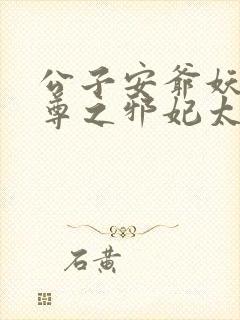 公子安爷妖
尊之邪妃太
石黄